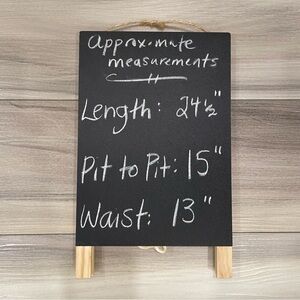 Approximate
measurements
Length: 24½"
Pit to Pit: 15"
Waist: 13"